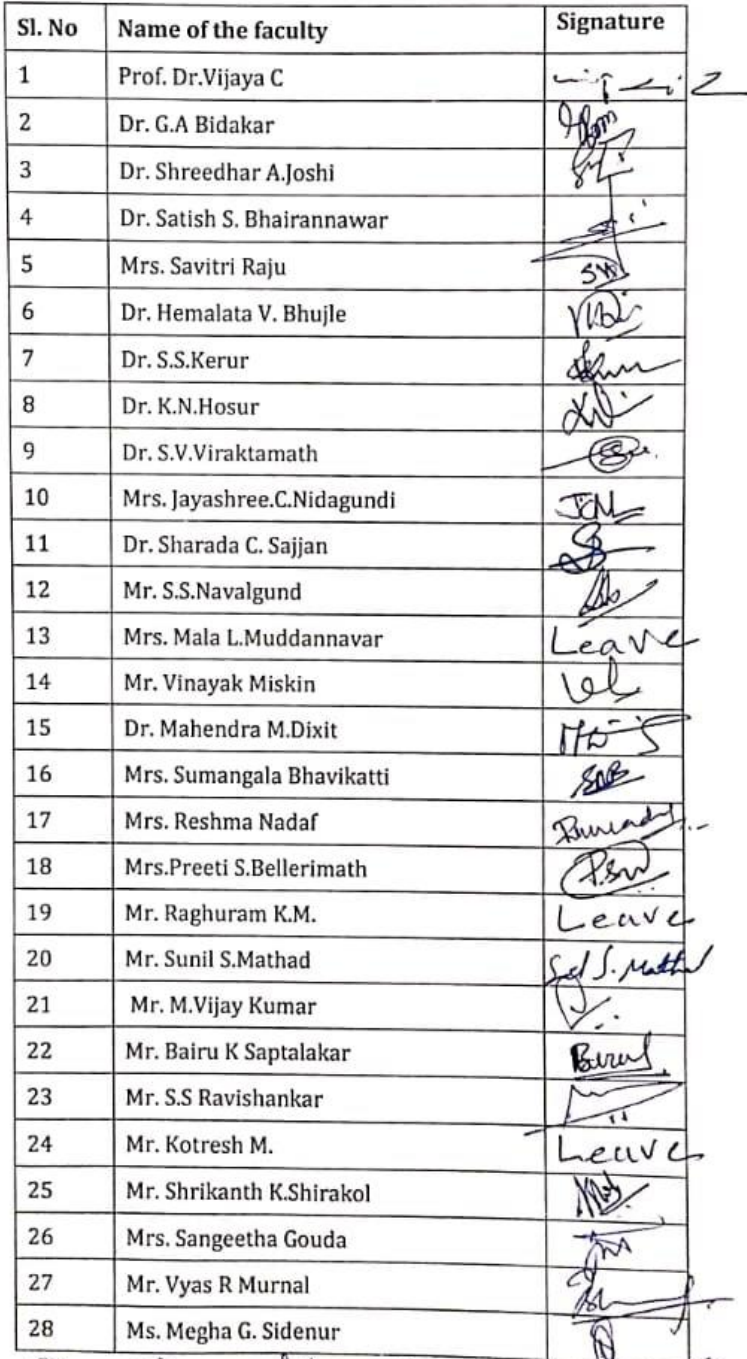 Sl. No Name of the faculty Signature
1 Prof. Dr.Vijaya C
2 Dr. G.A Bidakar
3 Dr. Shreedhar A.Joshi
4 Dr. Satish S. Bhairannawar
5 Mrs. Savitri Raju
6 Dr. Hemalata V. Bhujle
7 Dr. S.S.Kerur
8 Dr. K.N.Hosur
9 Dr. S.V.Viraktamath
10 Mrs. Jayashree.C.Nidagundi JCN
11 Dr. Sharada C. Sajjan
12 Mr. S.S.Navalgund
13 Mrs. Mala L.Muddannavar Leave
14 Mr. Vinayak Miskin
15 Dr. Mahendra M.Dixit
16 Mrs. Sumangala Bhavikatti
17 Mrs. Reshma Nadaf
18 Mrs.Preeti S.Bellerimath
19 Mr. Raghuram K.M. Leave
20 Mr. Sunil S.Mathad
21 Mr. M.Vijay Kumar
22 Mr. Bairu K Saptalakar
23 Mr. S.S Ravishankar
24 Mr. Kotresh M. Leave
25 Mr. Shrikanth K.Shirakol
26 Mrs. Sangeetha Gouda
27 Mr. Vyas R Murnal
28 Ms. Megha G. Sidenur